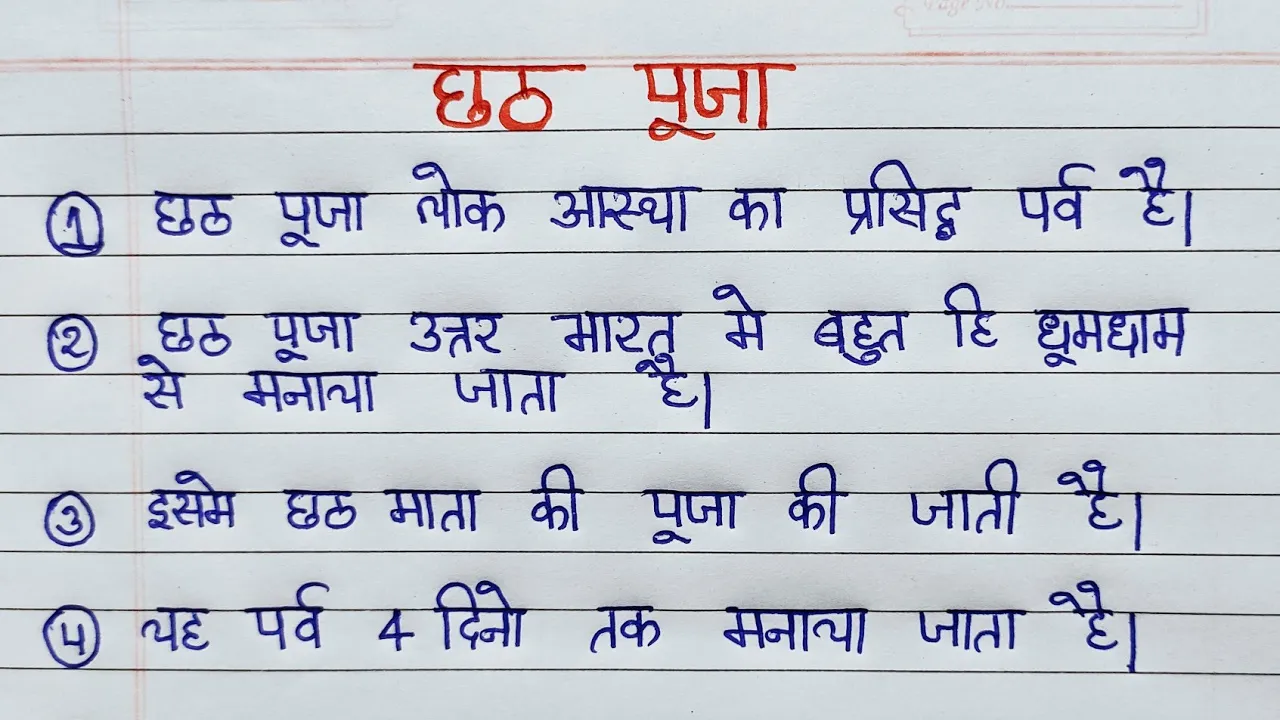 छठ पूजा
① छठ पूजा लोक आस्था का प्रसिद्ध पर्व है।
② छठ पूजा उत्तर भारत मे बहुत हि धूमधाम
से मनाया जाता है।
③ इसमे छठ माता की पूजा की जाती है।
④ यह पर्व 4 दिनो तक मनाया जाता है।